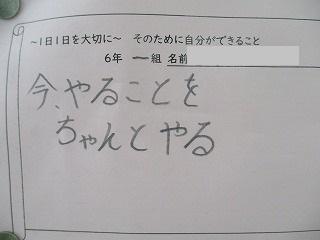 ~1日1日を大切に~　そのために自分ができること
6年　一組 名前
今、やることを
ちゃんとやる